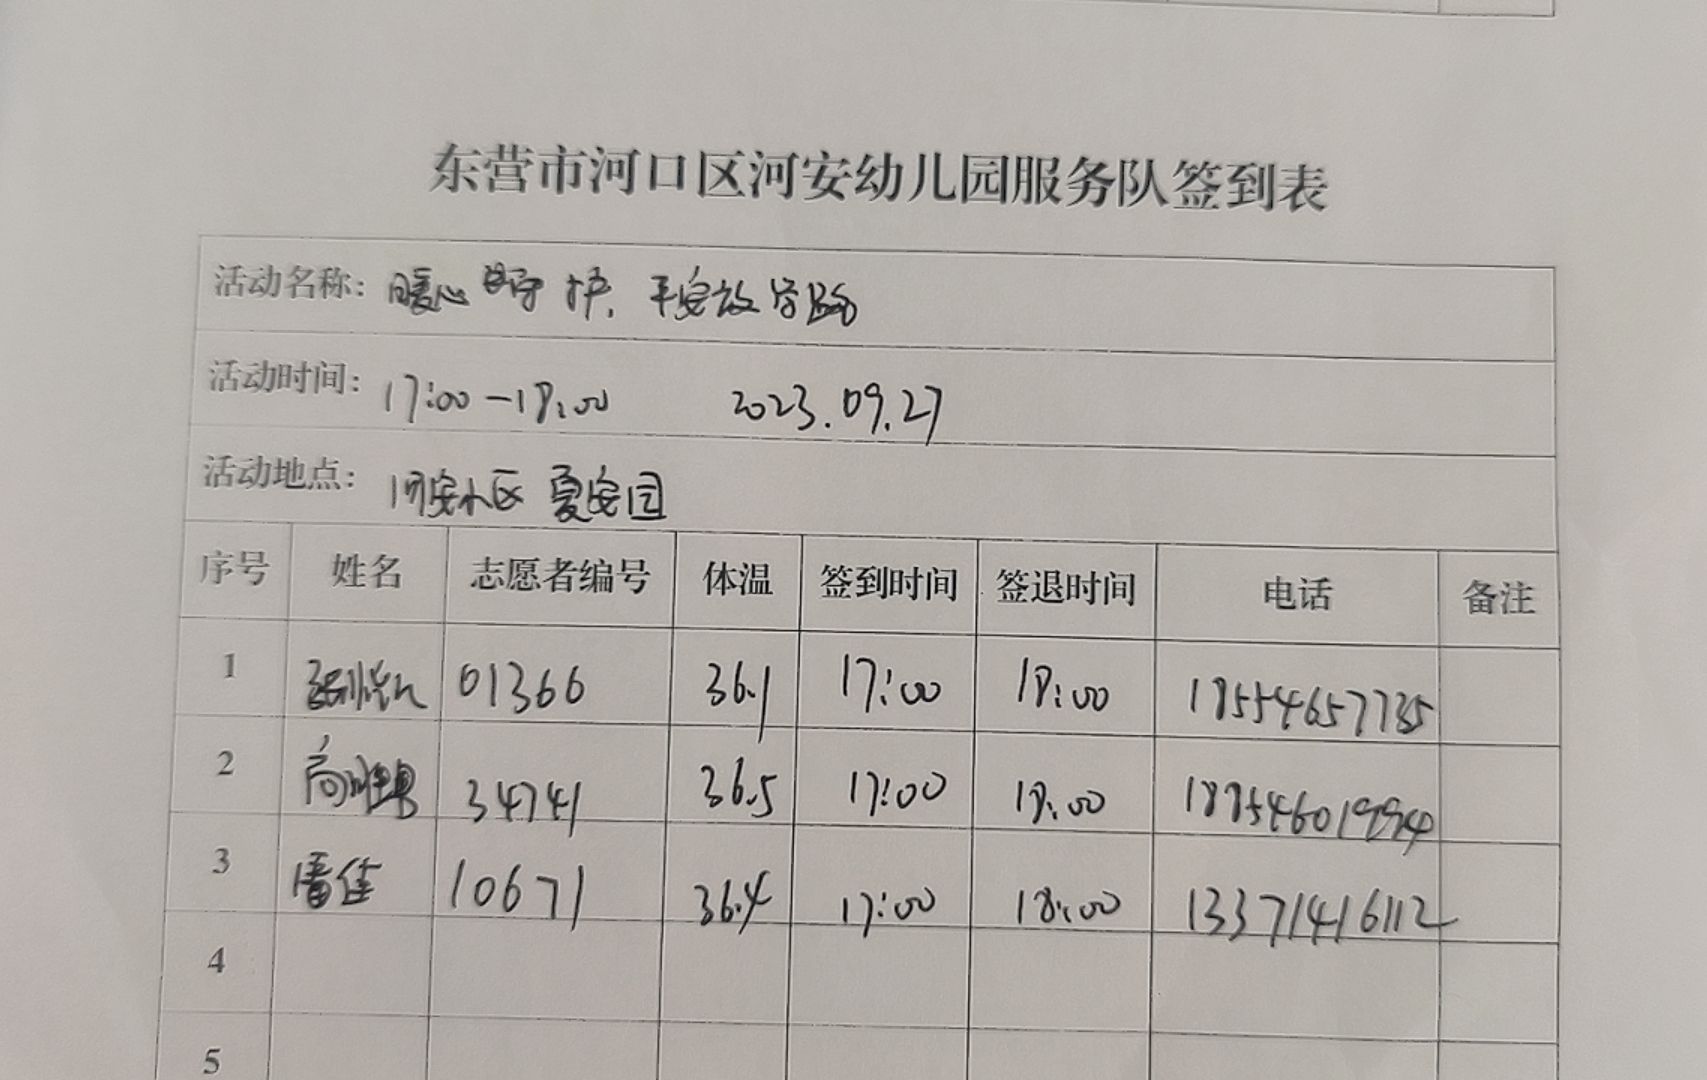 东营市河口区河安幼儿园服务队签到表
活动名称: 暖心守护、平安放学路
活动时间: 17:00-18:00 2023.09.27
活动地点: 河安小区 夏安园
序号 姓名 志愿者编号 体温 签到时间 签退时间 电话 备注
1 01366 36.1 17:00 18:00 18554657735
2 34741 36.5 17:00 18:00 18854601994
3 雷佳 10671 36.4 17:00 18:00 13371416112
4
5